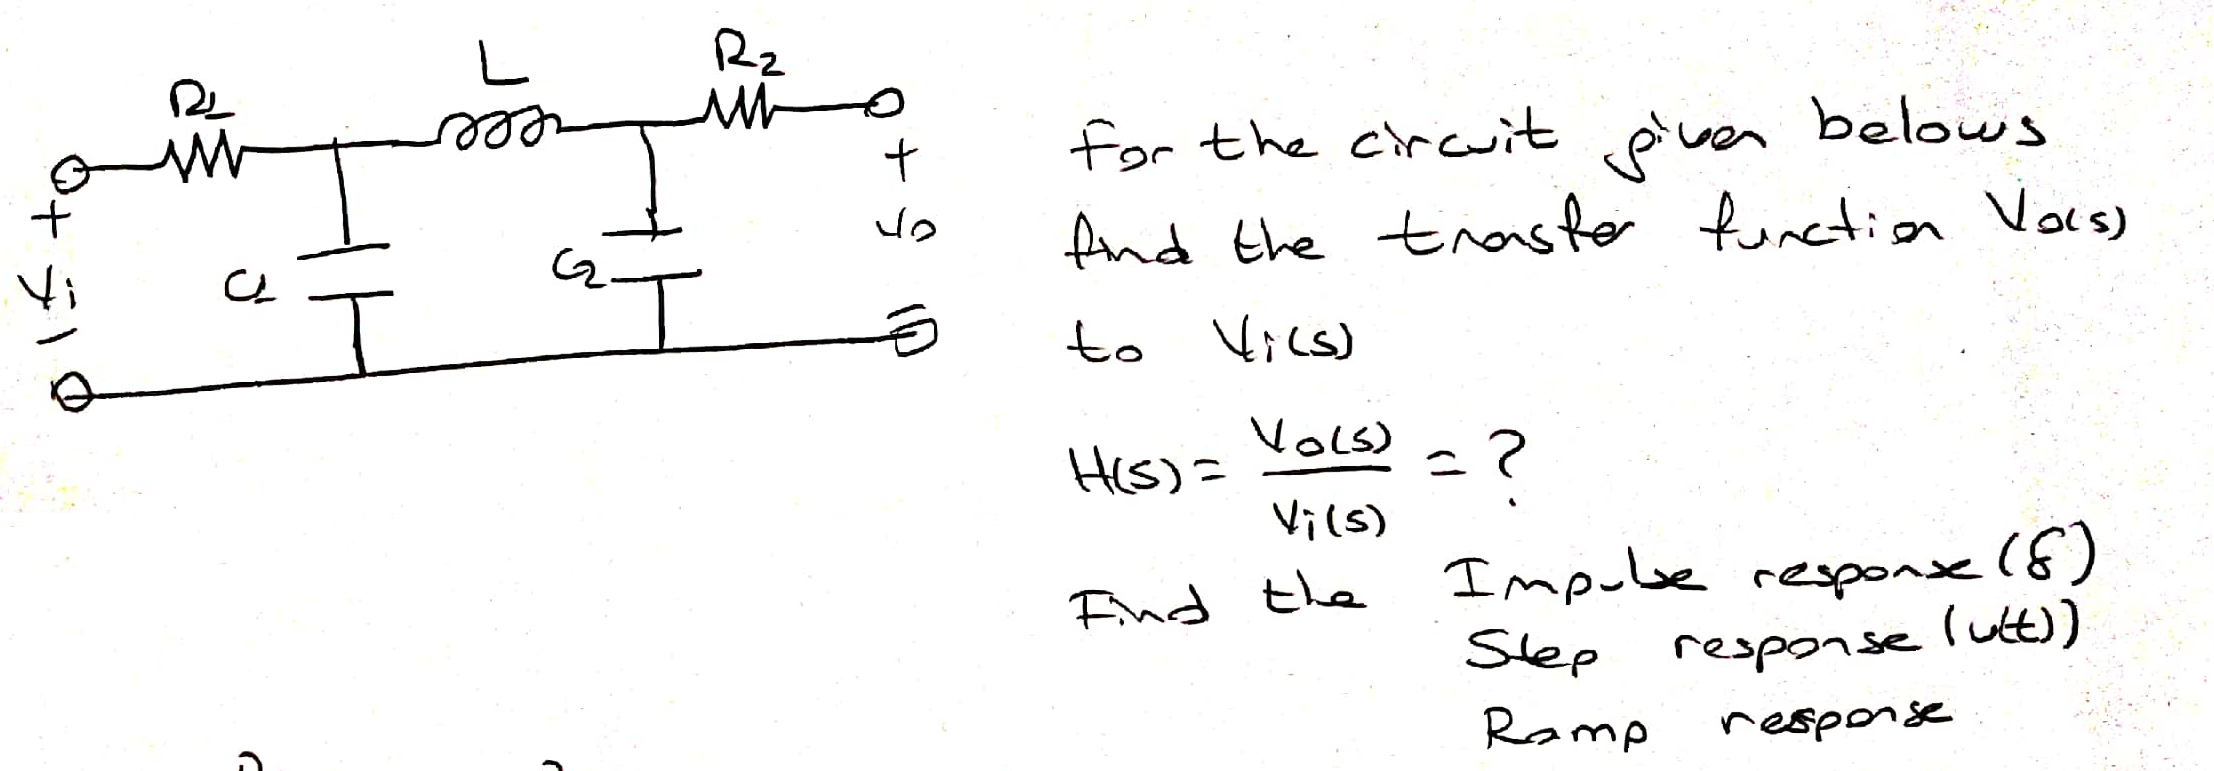 R1
L
R2
+
Vi
-
C1
C2
+
Vo
-
For the circuit given belows
find the transfer function Vo(s)
to Vi(s)
H(s) = Vo(s) / Vi(s) = ?
Find the Impulse response (δ)
Step response (u(t))
Ramp response